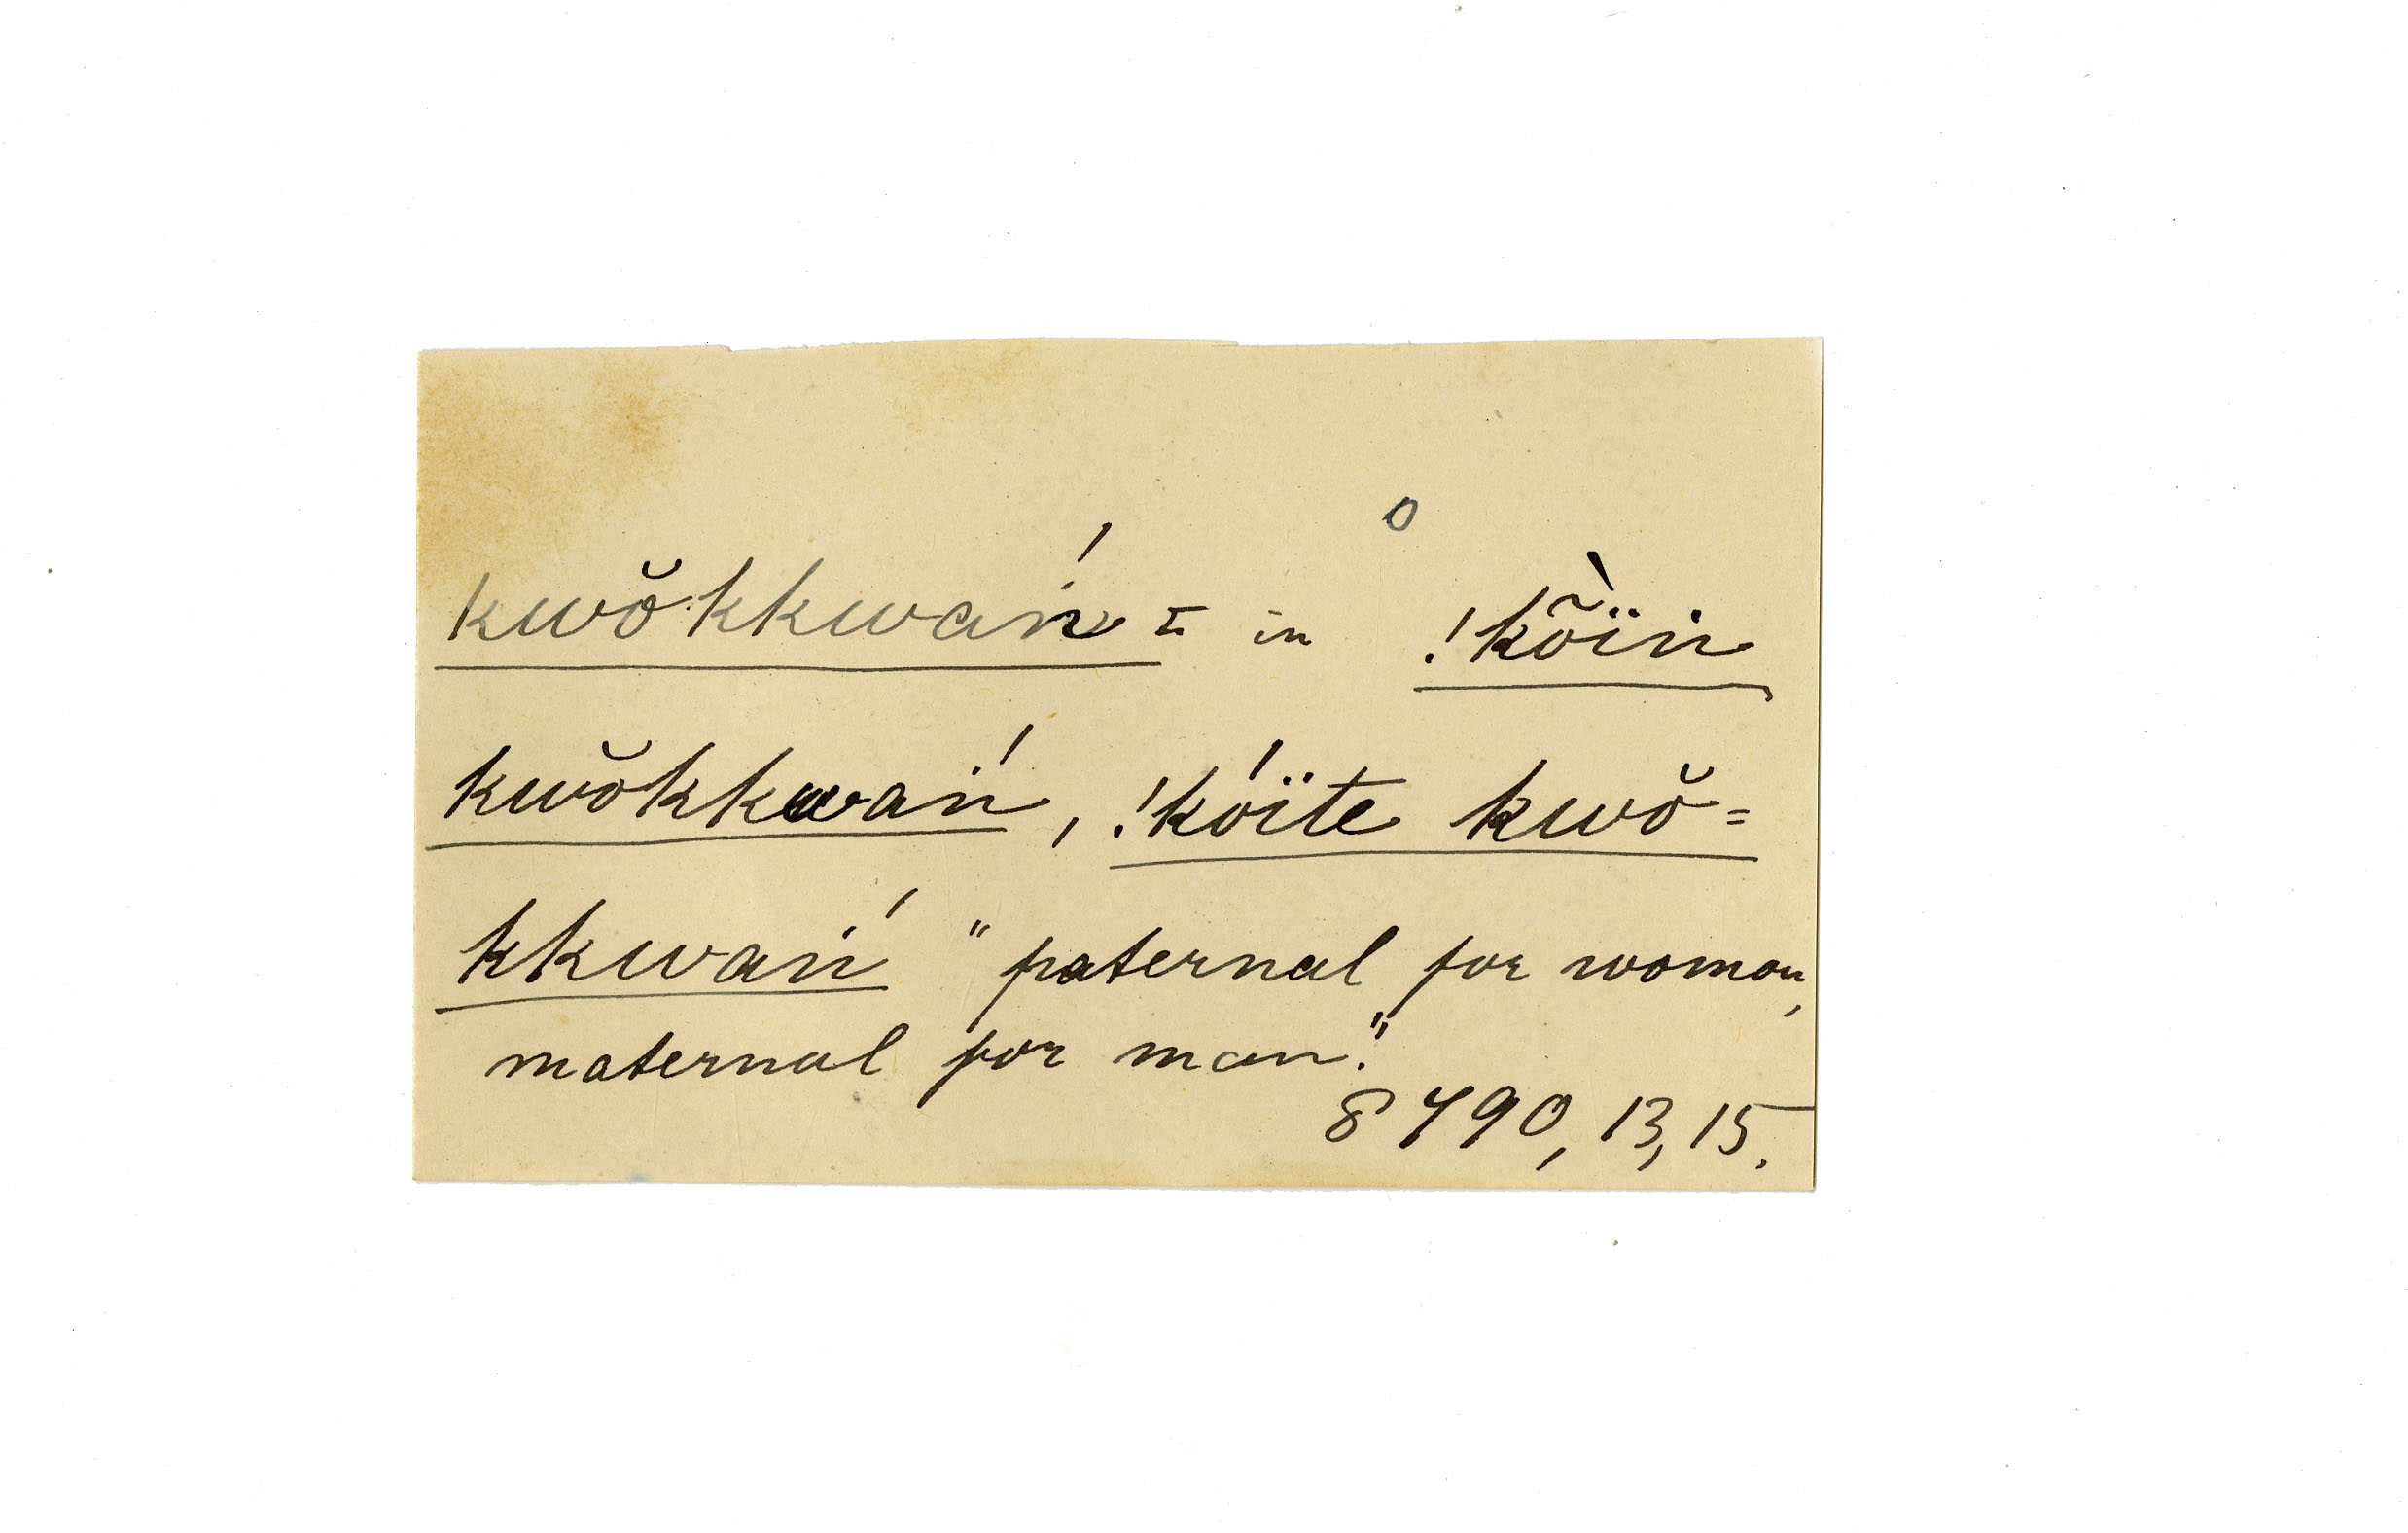 o
kwŏkkwaṅ́ = in !kõ̀ïn
kwŏkkwaṅ́, !kóïte kwŏ=
kkwaṅ́ "paternal for woman,
maternal for man."
8790, 13, 15.